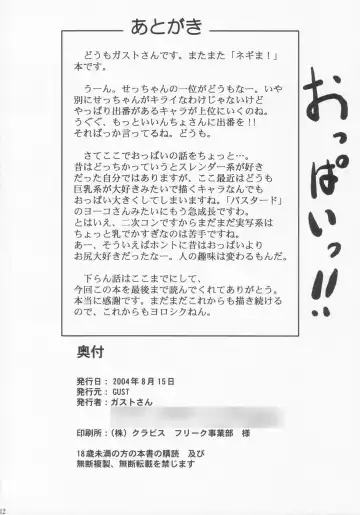 あとがき
どうもガストさんです。またまた「ネギま！」
本です。
うーん。せっちゃんの一位がどうもなー。いや
別にせっちゃんがキライなわけじゃないけど
やっぱり出番があるキャラが上位にいくのね。
うぐぐ、もっといいんちょさんに出番を!!
そればっか言ってるね。どうも。
さてここでおっぱいの話をちょっと…。
昔はどっちかっていうとスレンダー系が好き
だった自分ではありますが、ここ最近はどうも
巨乳系が大好きみたいで描くキャラなんでも
おっぱい大きくしてしまいますね。「バスタード」
のヨーコさんみたいにもう急成長ですな。
とはいえ、二次コンですからまだまだ実写系は
ちょっと乳でかすぎなのは苦手ですね。
あー、そういえばホントに昔はおっぱいより
お尻大好きだったなー。人の趣味は変わるもんだ。
下らん話はここまでにして、
今回この本を最後まで読んでくれてありがとう。
本当に感謝です。まだまだこれからも描き続ける
ので、これからもヨロシクねん。
おっぱいっ!!
奥付
発行日：2004年8月15日
発行元：GUST
発行者：ガストさん
印刷所：（株）クラビス　フリーク事業部　様
18歳未満の方の本書の購読　及び
無断複製、無断転載を禁じます